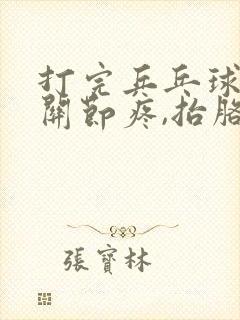 打完乒乓球
關節疼,抬胳
張寶林